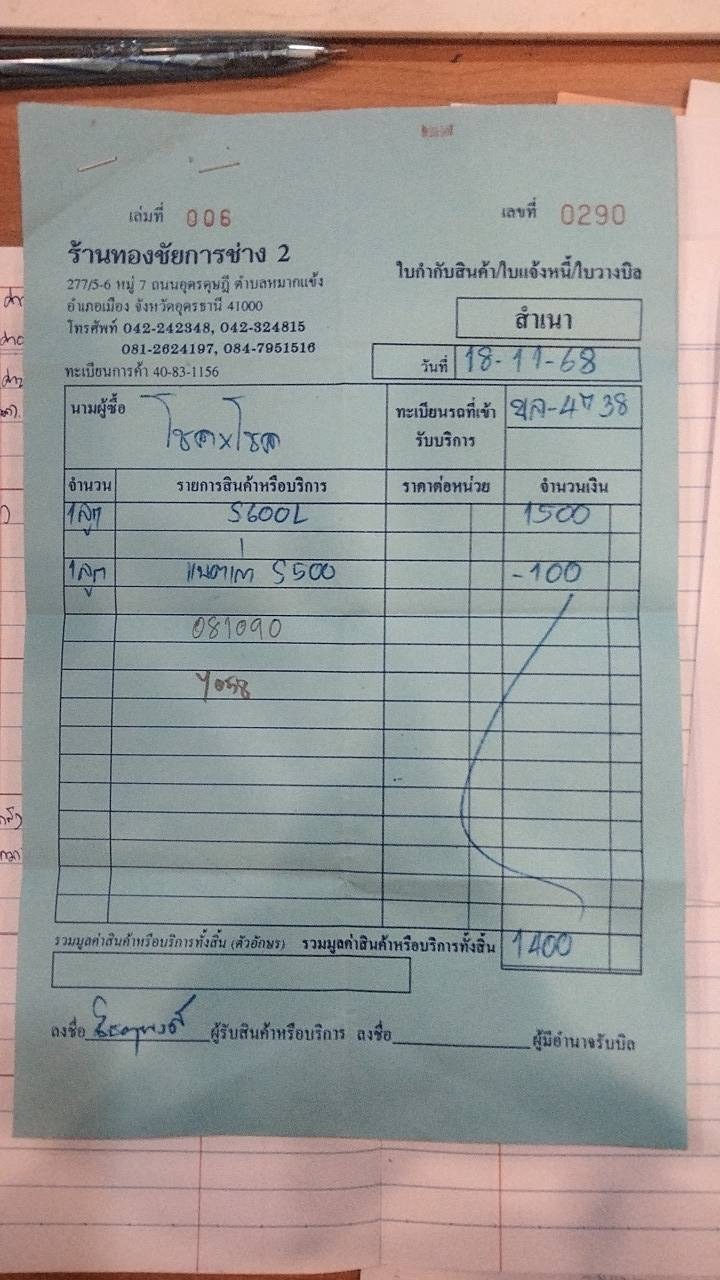 เล่มที่ 006
เลขที่ 0290
ร้านทองชัยการช่าง 2
277/5-6 หมู่ 7 ถนนอุดรดุษฎี ตำบลหมากแข้ง
อำเภอเมือง จังหวัดอุดรธานี 41000
โทรศัพท์ 042-242348, 042-324815
081-2624197, 084-7951516
ทะเบียนการค้า 40-83-1156
ใบกำกับสินค้า/ใบแจ้งหนี้/ใบวางบิล
สำเนา
วันที่ 18-11-68
นามผู้ซื้อ โชคxโชค
ทะเบียนรถที่เข้ารับบริการ
จำนวน รายการสินค้าหรือบริการ ราคาต่อหน่วย จำนวนเงิน
1ลูก S600L 1500
1ลูก แบตเก่า S500 -100
081090
รวมมูลค่าสินค้าหรือบริการทั้งสิ้น (ตัวอักษร) รวมมูลค่าสินค้าหรือบริการทั้งสิ้น 1400
ลงชื่อ ผู้รับสินค้าหรือบริการ ลงชื่อ ผู้มีอำนาจรับบิล